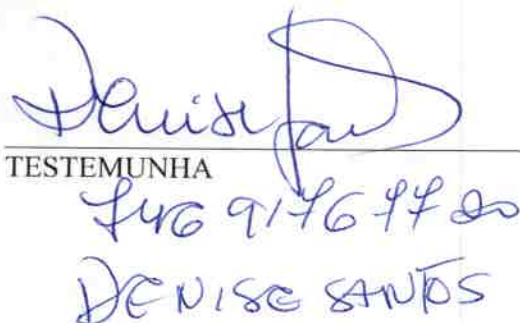 Denise Sant
TESTEMUNHA
746 917677 20
DENISE SANTOS